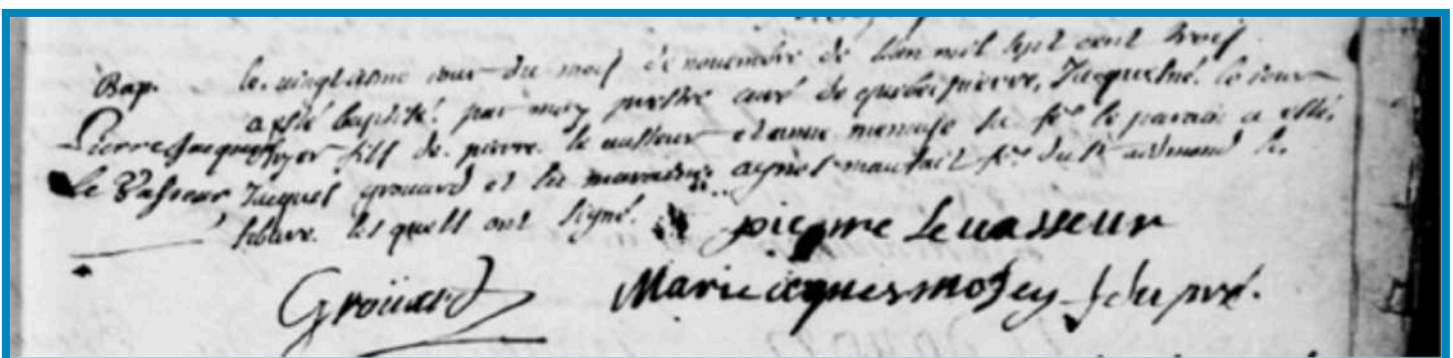 Bap.
Pierre Jacques
Le Vasseur
le vingtiesme iour du mois de novembre de l'an mil sept cent trois
a esté baptisé par moy prestre curé de quebec pierre Jacques né le iour
fils de pierre le vasseur et anne menage sa fe. le parain a esté
Jacques grouard et la maraine agnes maufait fe. du Sr. edmond le
febure. lesquels ont signé.
pierre Levasseur
Grouard Marie agnes mofey f dupré.